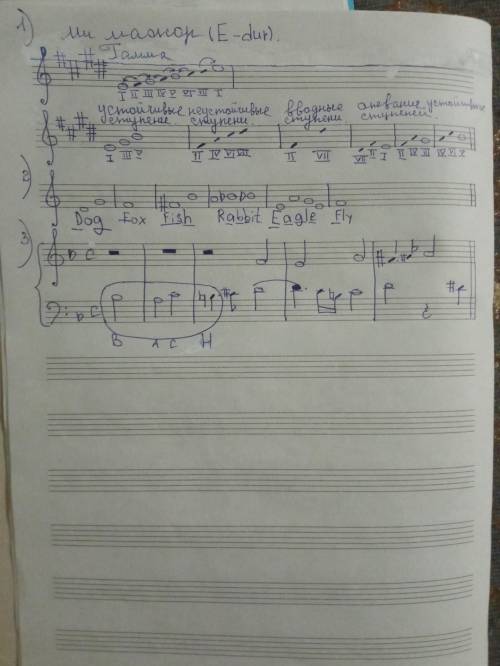 1) Ми мажор (E-dur).
Гамма
I II III IV V VI VII I
устойчивые неустойчивые вводные опевание устойчивых
ступени ступени ступени ступеней.
I III V II IV VI VII II VII VII II I II IV III IV VI V
2)
Dog fox Fish Rabbit Eagle Fly
3)
C
C
B A C H